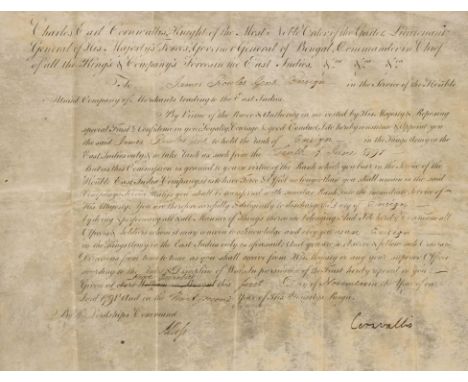 Charles Earl Cornwallis, Knight of the Most Noble Order of the Garter, Lieutenant
General of His Majesty's Forces, Governor General of Bengal, Commander in Chief
of all the King's & Company's Forces in the East Indies. &ca &ca &ca
To James Gent. Ensign in the Service of the Honble
United Company of Merchants trading to the East Indies.
By Virtue of the Power & Authority in me vested by His Majesty & Reposing
special Trust & Confidence in your Loyalty, Courage & good Conduct, I do hereby constitute & Appoint you
the said James to hold the Rank of Ensign in the King's Army in the
East Indies only & to take Rank as such from the
But as this Commission is granted to you in virtue of the Rank which you bear in the Service of the
Honble East India Company, it is to have Force & Effect no longer than you shall remain in the said
Company's Service, unless you shall be
His Majesty. You are therefore carefully & diligently to discharge the Duty of Ensign
by doing & performing all & all Manner of Things thereunto belonging And I do hereby Command all
Officers & Soldiers whom it may concern to acknowledge and obey you as an Ensign
in the King's Army in the East Indies only as aforesaid And you are to observe & follow such Orders &
Directions from time to time as you shall receive from His Majesty or any your superior Officer
according to the Rules & Discipline of War In pursuance of the Trust hereby reposed in you
Given at this first Day of November in the Year of our
Lord 1791 And in the Year of His Majesty's Reign.
By His Lordships Command
Cornwallis